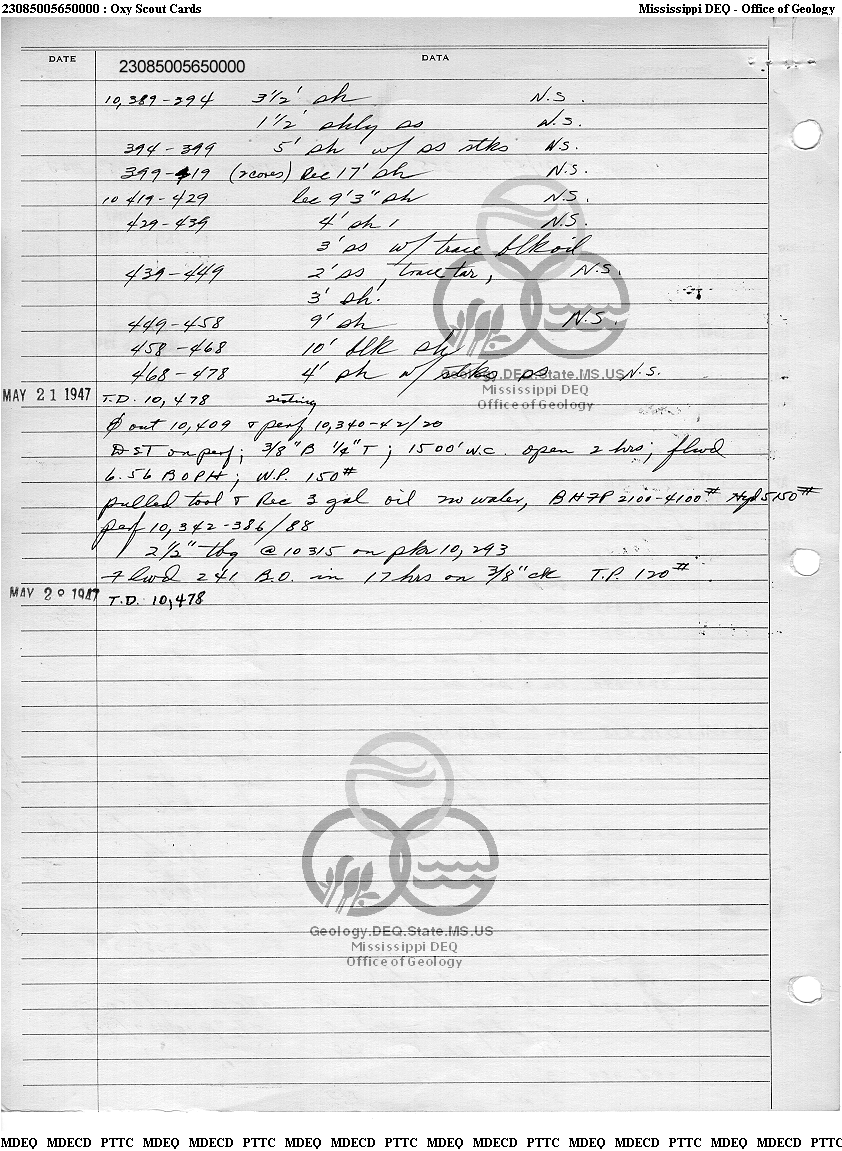 23085005650000 : Oxy Scout Cards Mississippi DEQ - Office of Geology
DATE DATA
23085005650000
10,389-294 3 1/2' sh N.S.
1 1/2' shly ss N.S.
394-399 5' sh w/ ss stks N.S.
399-419 (2 cores) Rec 17' sh N.S.
10 419-429 Rec 9'3" sh N.S.
429-439 4' sh, N.S.
3' ss w/ trace blk oil
439-449 2' ss, trace tar, N.S.
3' sh.
449-458 9' sh N.S.
458-468 10' blk sh
468-478 4' sh w/ stks ss N.S.
Geology.DEQ.State.MS.US
Mississippi DEQ
Office of Geology
MAY 21 1947 T.D. 10,478 testing
out 10,409 & perf 10,340-42/20
DST on perf; 3/8" B 1/4" T; 1500' W.C. open 2 hrs; flwd
6.56 BOPH; W.P. 150#
pulled tool & Rec 3 gal oil no water, BHFP 2100-4100# Hyd 5150#
perf 10,342-386/88
2 1/2" tbg @ 10315 on pkr 10,293
Flwd 241 B.O. in 17 hrs on 3/8" ck T.P. 120#
MAY 2 1947 T.D. 10,478
Geology.DEQ.State.MS.US
Mississippi DEQ
Office of Geology
MDEQ MDECD PTTC MDEQ MDECD PTTC MDEQ MDECD PTTC MDEQ MDECD PTTC MDEQ MDECD PTTC MDEQ MDECD PTTC